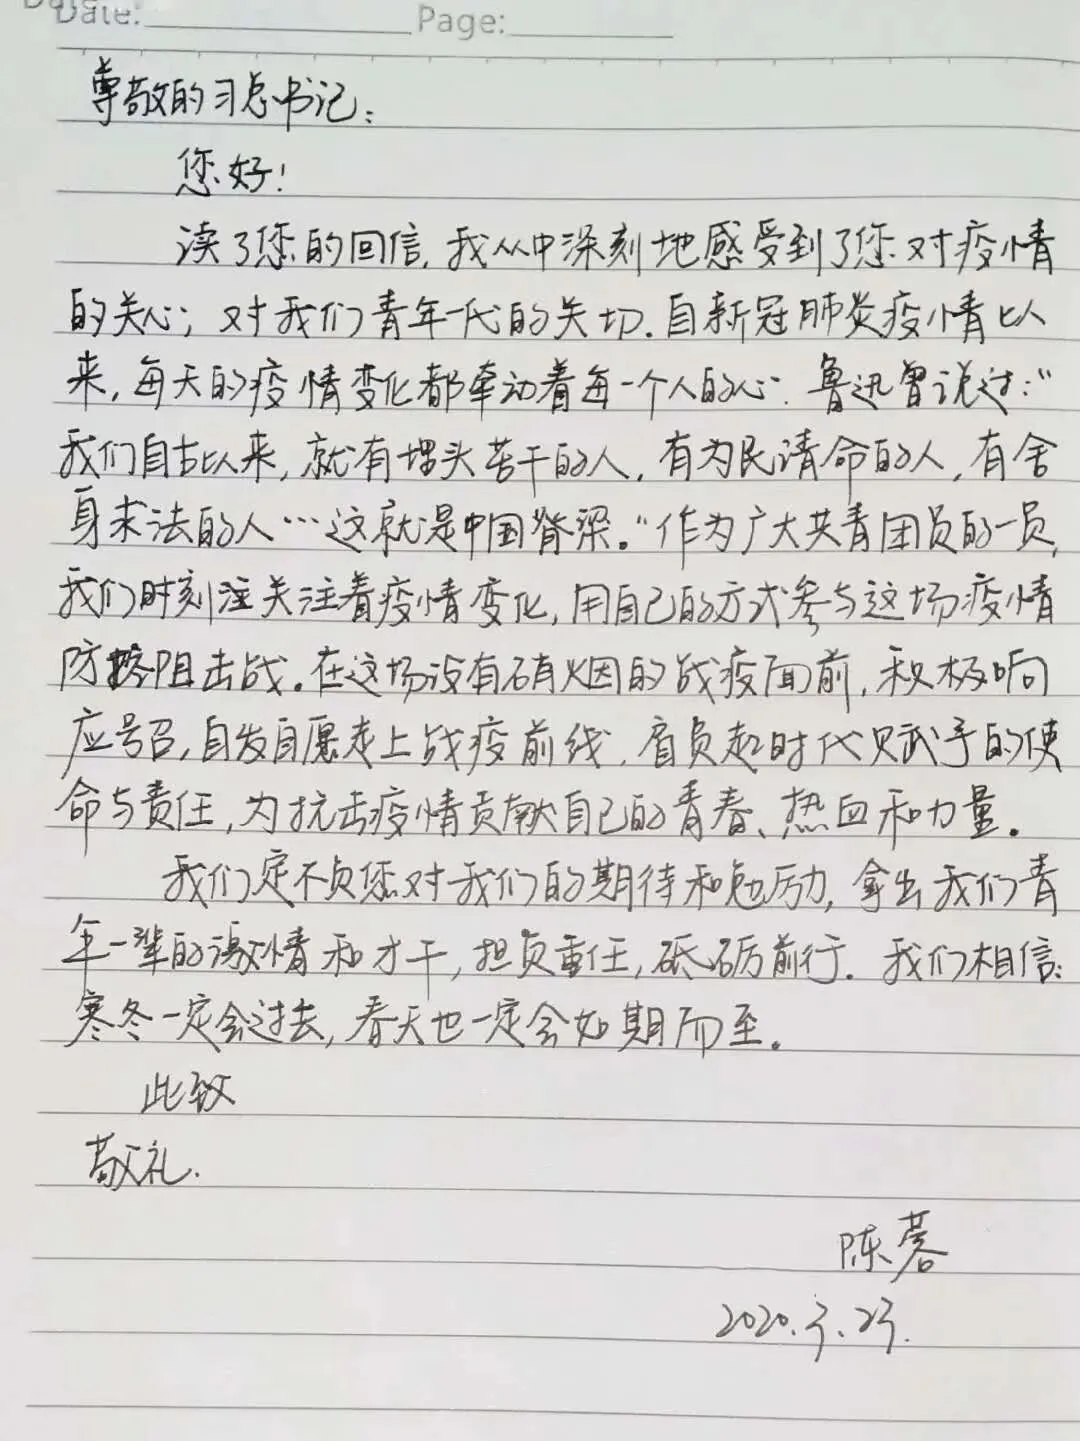 Date: Page:
尊敬的习总书记：
您好！
读了您的回信，我从中深刻地感受到了您对疫情
的关心；对我们青年一代的关切．自新冠肺炎疫情以
来，每天的疫情变化都牵动着每一个人的心．鲁迅曾说过：“
我们自古以来，就有埋头苦干的人，有为民请命的人，有舍
身求法的人…这就是中国脊梁。”作为广大共青团员的一员，
我们时刻注关注着疫情变化，用自己的方式参与这场疫情
防控阻击战．在这场没有硝烟的战疫面前，积极响
应号召，自发自愿走上战疫前线，肩负起时代赋予的使
命与责任，为抗击疫情贡献自己的青春、热血和力量。
我们定不负您对我们的期待和勉励，拿出我们青
年一辈的激情和才干，担负重任，砥砺前行．我们相信：
寒冬一定会过去，春天也一定会如期而至。
此致
敬礼．
陈蓉
2020.3.23.